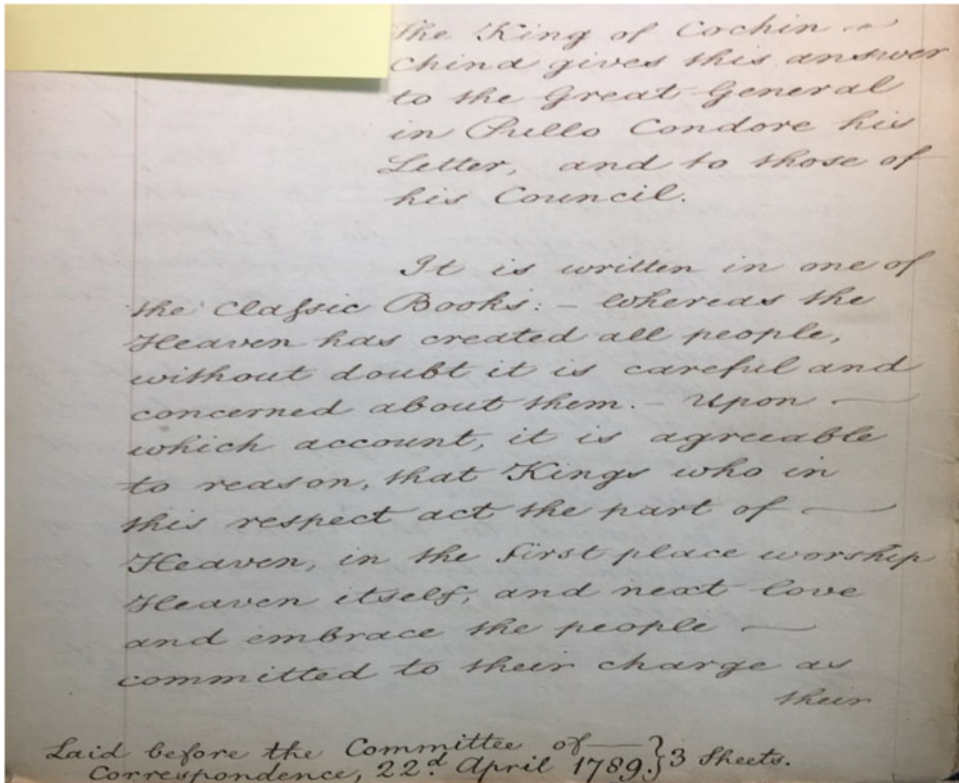 The King of Cochin -
China gives this answer
to the Great General
in Pullo Condore his
Letter, and to those of
his Council.
It is written in one of
the Classic Books: - Whereas the
Heaven has created all people,
without doubt it is careful and
concerned about them. - Upon —
which account, it is agreeable
to reason, that Kings who in
this respect act the part of —
Heaven, in the first place worship
Heaven itself, and next love
and embrace the people —
committed to their charge as
their
Laid before the Committee of — } 3 Sheets.
Correspondence, 22.d April 1789.